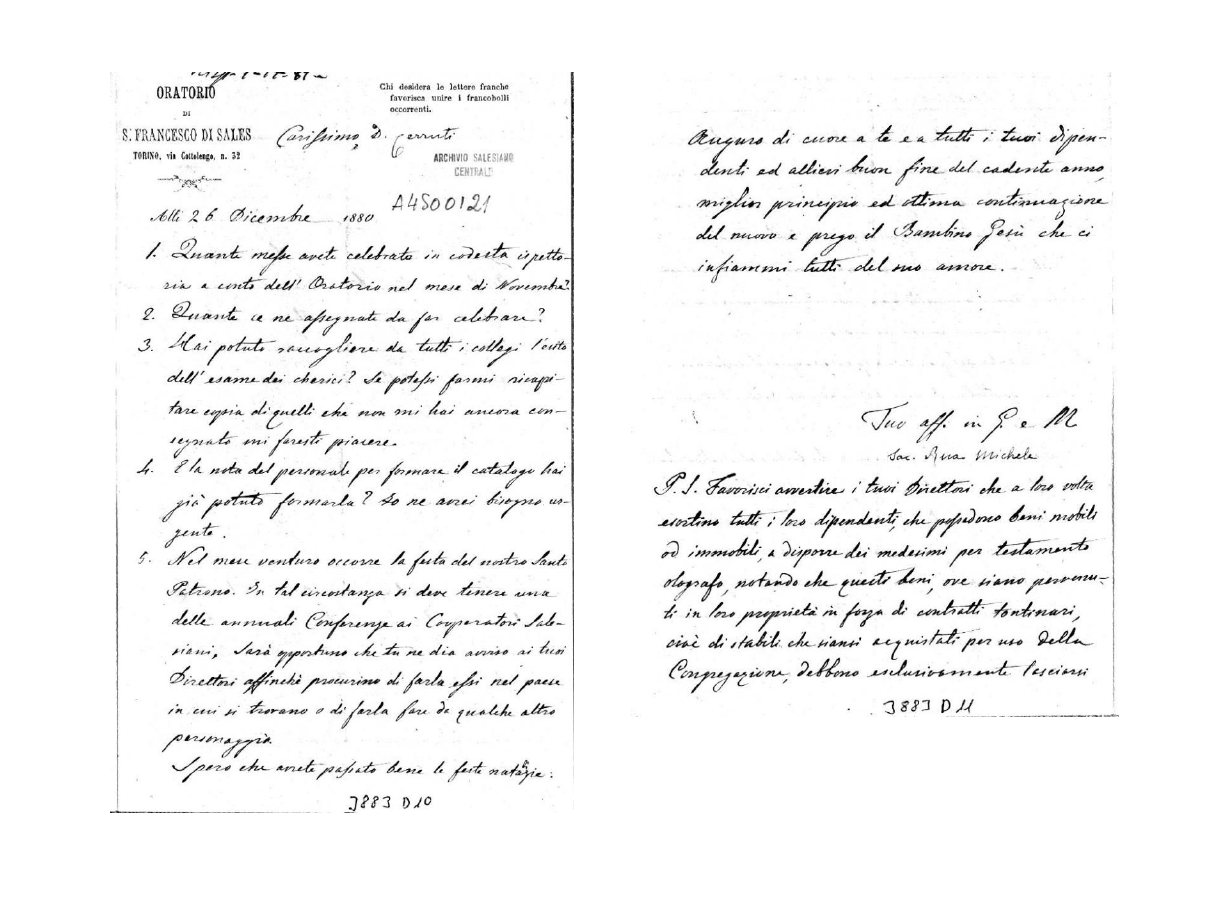 ORATORIO
DI
S. FRANCESCO DI SALES
TORINO, via Cottolengo, n. 32
Chi desidera le lettere franche
favorisca unire i francobolli
occorrenti.
Carissimo D. Cerruti
ARCHIVIO SALESIANO
CENTRALE
A4500121
Alli 26 Dicembre 1880
1. Quante messe avete celebrato in codesta ispetto-
ria a conto dell' Oratorio nel mese di Novembre?
2. Quante ce ne assegnate da far celebrare?
3. Hai potuto raccogliere da tutti i collegi l'esito
dell' esame dei cherici? Se potessi farmi ricapi-
tare copia di quelli che non mi hai ancora con-
segnato mi faresti piacere.
4. E la nota del personale per formare il catalogo hai
già potuto formarla? Io ne avrei bisogno ur-
gente.
5. Nel mese venturo occorre la festa del nostro Santo
Patrono. In tal circostanza si deve tenere una
delle annuali Conferenze ai Cooperatori Sale-
siani, Sarà opportuno che tu ne dia avviso ai tuoi
Direttori affinchè procurino di farla essi nel paese
in cui si trovano o di farla fare da qualche altro
personaggio.
Spero che avrete passato bene le feste natalizie:
3883 D10
Auguro di cuore a te e a tutti i tuoi dipen-
denti ed allievi buon fine del cadente anno,
miglior principio ed ottima continuazione
del nuovo e prego il Bambino Gesù che ci
infiammi tutti del suo amore.
Tuo aff. in G. e M
Sac. Rua Michele
P.S. Favorisci avvertire i tuoi Direttori che a loro volta
esortino tutti i loro dipendenti, che possedono beni mobili
od immobili, a disporre dei medesimi per testamento
olografo, notando che questi beni, ove siano pervenu-
ti in loro proprietà in forza di contratti tontinari,
cioè di stabili che siansi acquistati per uso della
Congregazione, debbono esclusivamente lasciarsi
3883 D11